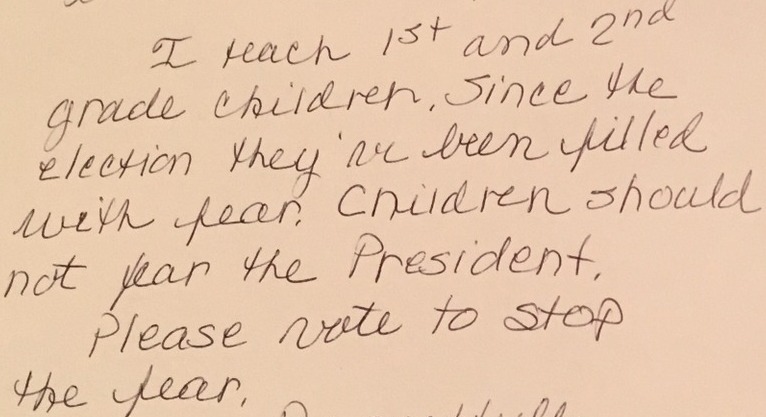 I teach 1st and 2nd
grade children. Since the
election they've been filled
with fear. Children should
not fear the President.
Please vote to stop
the fear.